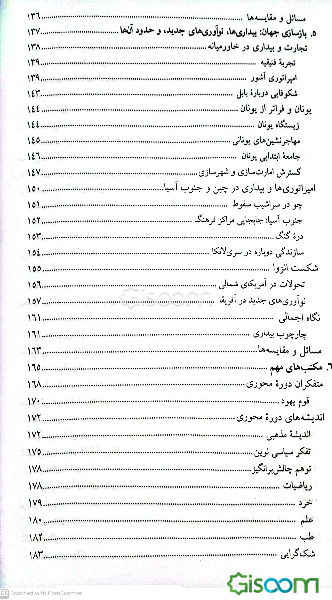 مسائل و مقایسه‌ها ... ۱۳۶
۵. بازسازی جهان: بیداری‌ها، نوآوری‌های جدید، و حدود آن‌ها ... ۱۳۷
تجارت و بیداری در خاورمیانه ... ۱۳۸
تجربهٔ فنیقیه ... ۱۳۹
امپراتوری آشور ... ۱۳۹
شکوفایی دوبارهٔ بابل ... ۱۴۳
یونان و فراتر از یونان ... ۱۴۴
زیستگاه یونان ... ۱۴۴
مهاجرنشین‌های یونانی ... ۱۴۵
جامعهٔ ابتدایی یونان ... ۱۴۶
گسترش امارت‌سازی و شهرسازی ... ۱۴۷
امپراتوری‌ها و بیداری در چین و جنوب آسیا ... ۱۵۰
چو در سراشیب سقوط ... ۱۵۱
جنوب آسیا: جابجایی مراکز فرهنگ ... ۱۵۲
درهٔ گنگ ... ۱۵۳
سازندگی دوباره در سری‌لانکا ... ۱۵۴
شکست انزوا ... ۱۵۵
تحولات در آمریکای شمالی ... ۱۵۶
نوآوری‌های جدید در آفریقا ... ۱۵۷
نگاه اجمالی ... ۱۶۱
چارچوب بیداری ... ۱۶۱
مسائل و مقایسه‌ها ... ۱۶۳
۶. مکتب‌های مهم ... ۱۶۵
متفکران دورهٔ محوری ... ۱۶۸
قوم یهود ... ۱۷۰
اندیشه‌های دورهٔ محوری ... ۱۷۲
اندیشهٔ مذهبی ... ۱۷۲
تفکر سیاسی نوین ... ۱۷۵
توهم چالش‌برانگیز ... ۱۷۸
ریاضیات ... ۱۷۸
خرد ... ۱۷۹
علم ... ۱۸۰
طب ... ۱۸۲
شک‌گرایی ... ۱۸۳
Gisoom
CS Scanned with CamScanner
Gisoom